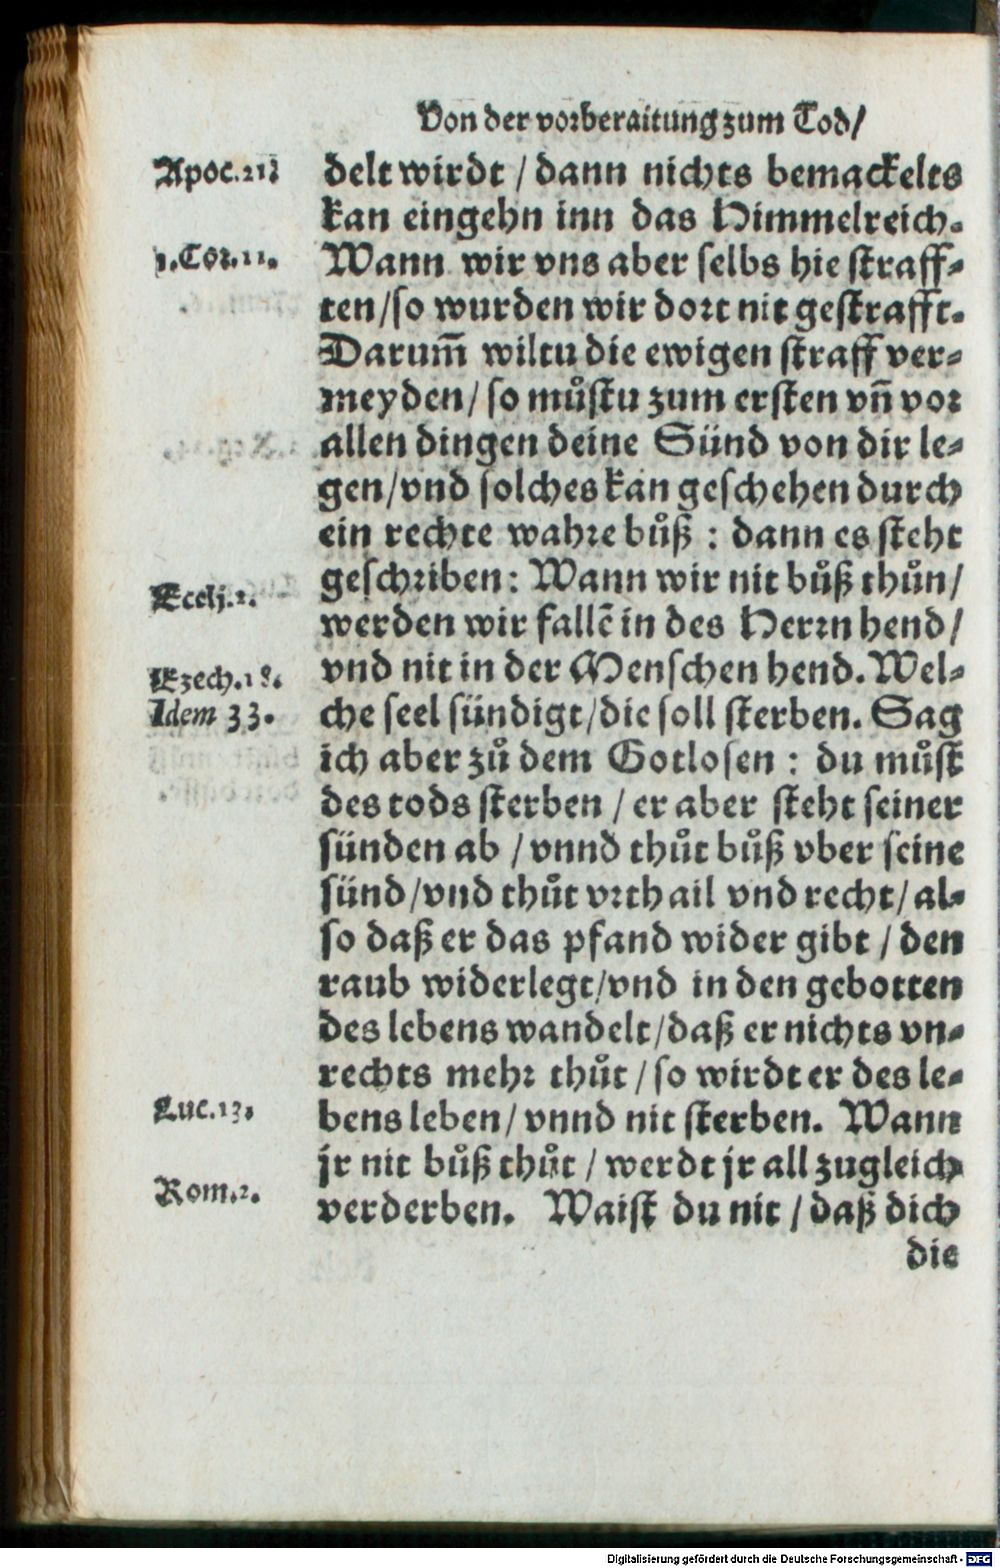 Von der vorberaitung zum Tod/
Apoc.21.
delt wirdt / dann nichts bemackelts
kan eingehn inn das Himmelreich.
1.Cor.11.
Wann wir vns aber selbs hie straff-
ten/so wurden wir dort nit gestrafft.
Darum̃ wiltu die ewigen straff ver-
meyden/ so můstu zum ersten vñ vor
allen dingen deine Sünd von dir le-
gen/vnd solches kan geschehen durch
ein rechte wahre bůß : dann es steht
Eccli.2.
geschriben: Wann wir nit bůß thůn/
werden wir fallẽ in des Herrn hend/
Ezech.18.
vnd nit in der Menschen hend. Wel-
Idem 33.
che seel sündigt/die soll sterben. Sag
ich aber zů dem Gotlosen : du můst
des tods sterben / er aber steht seiner
sünden ab / vnnd thůt bůß vber seine
sünd/vnd thůt vrthail vnd recht/ al-
so daß er das pfand wider gibt / den
raub widerlegt/vnd in den gebotten
des lebens wandelt/daß er nichts vn-
rechts mehr thůt / so wirdt er des le-
Luc.13.
bens leben/ vnnd nit sterben. Wann
jr nit bůß thůt / werdt jr all zugleich
Rom.2.
verderben. Waist du nit / daß dich
die
Digitalisierung gefördert durch die Deutsche Forschungsgemeinschaft - DFG